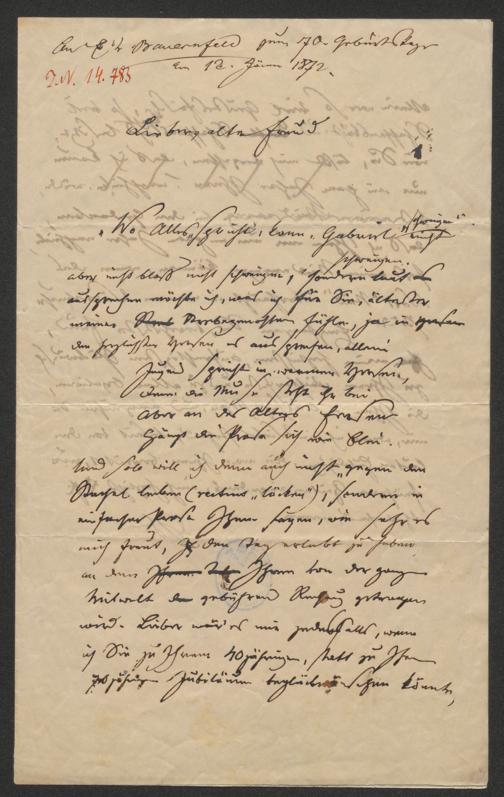 An E. v. Bauernfeld zum 70. Geburtstage
am 13. Jänner 1872.
I.N. 14.783
Lieber, alter Freund
1
"Wo Alles spricht, kann Gabriel nicht "schweigen".
schweigen.
aber nicht bloß nicht schweigen, sondern laut es
aussprechen möchte ich, was ich für Sie, ältester
meiner fühle, ja in
den herzlichsten Versen es aussprechen, allein
Jugend spricht in warmen Versen,
Denn die Muse steht ihr bei
Aber an des Alters Fersen
Hängt die Prosa sich wie Blei.
Und so will ich denn auch nicht "gegen den
Stachel lecken (rectius "löcken"), sondern in
einfacher Prosa Ihnen sagen, wie sehr es
mich freut, den Tag erlebt zu haben
an dem Ihnen von der ganzen
Mitwelt die gebührende Rechnung getragen
wird. Lieber wär' es mir jedenfalls, wenn
ich Sie zu Ihrem 40jährigen, statt zu Ihrem
70jährigen Jubiläum beglückwünschen könnte,